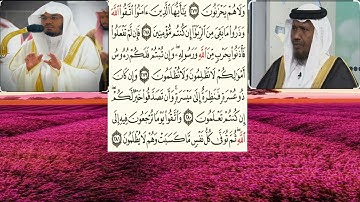 وَلَا هُمْ يَحْزَنُونَ ٢٧٧ يَٰٓأَيُّهَا ٱلَّذِينَ ءَامَنُوا۟ ٱتَّقُوا۟ ٱللَّهَ
وَذَرُوا۟ مَا بَقِىَ مِنَ ٱلرِّبَوٰٓا۟ إِن كُنتُم مُّؤْمِنِينَ ٢٧٨ فَإِن لَّمْ تَفْعَلُوا۟
فَأْذَنُوا۟ بِحَرْبٍ مِّنَ ٱللَّهِ وَرَسُولِهِۦ ۖ وَإِن تُبْتُمْ فَلَكُمْ رُءُوسُ
أَمْوَٰلِكُمْ لَا تَظْلِمُونَ وَلَا تُظْلَمُونَ ٢٧٩ وَإِن كَانَ
ذُو عُسْرَةٍ فَنَظِرَةٌ إِلَىٰ مَيْسَرَةٍ ۚ وَأَن تَصَدَّقُوا۟ خَيْرٌ لَّكُمْ ۖ
إِن كُنتُمْ تَعْلَمُونَ ٢٨٠ وَٱتَّقُوا۟ يَوْمًا تُرْجَعُونَ فِيهِ إِلَى
ٱللَّهِ ۖ ثُمَّ تُوَفَّىٰ كُلُّ نَفْسٍ مَّا كَسَبَتْ وَهُمْ لَا يُظْلَمُونَ ٢٨١